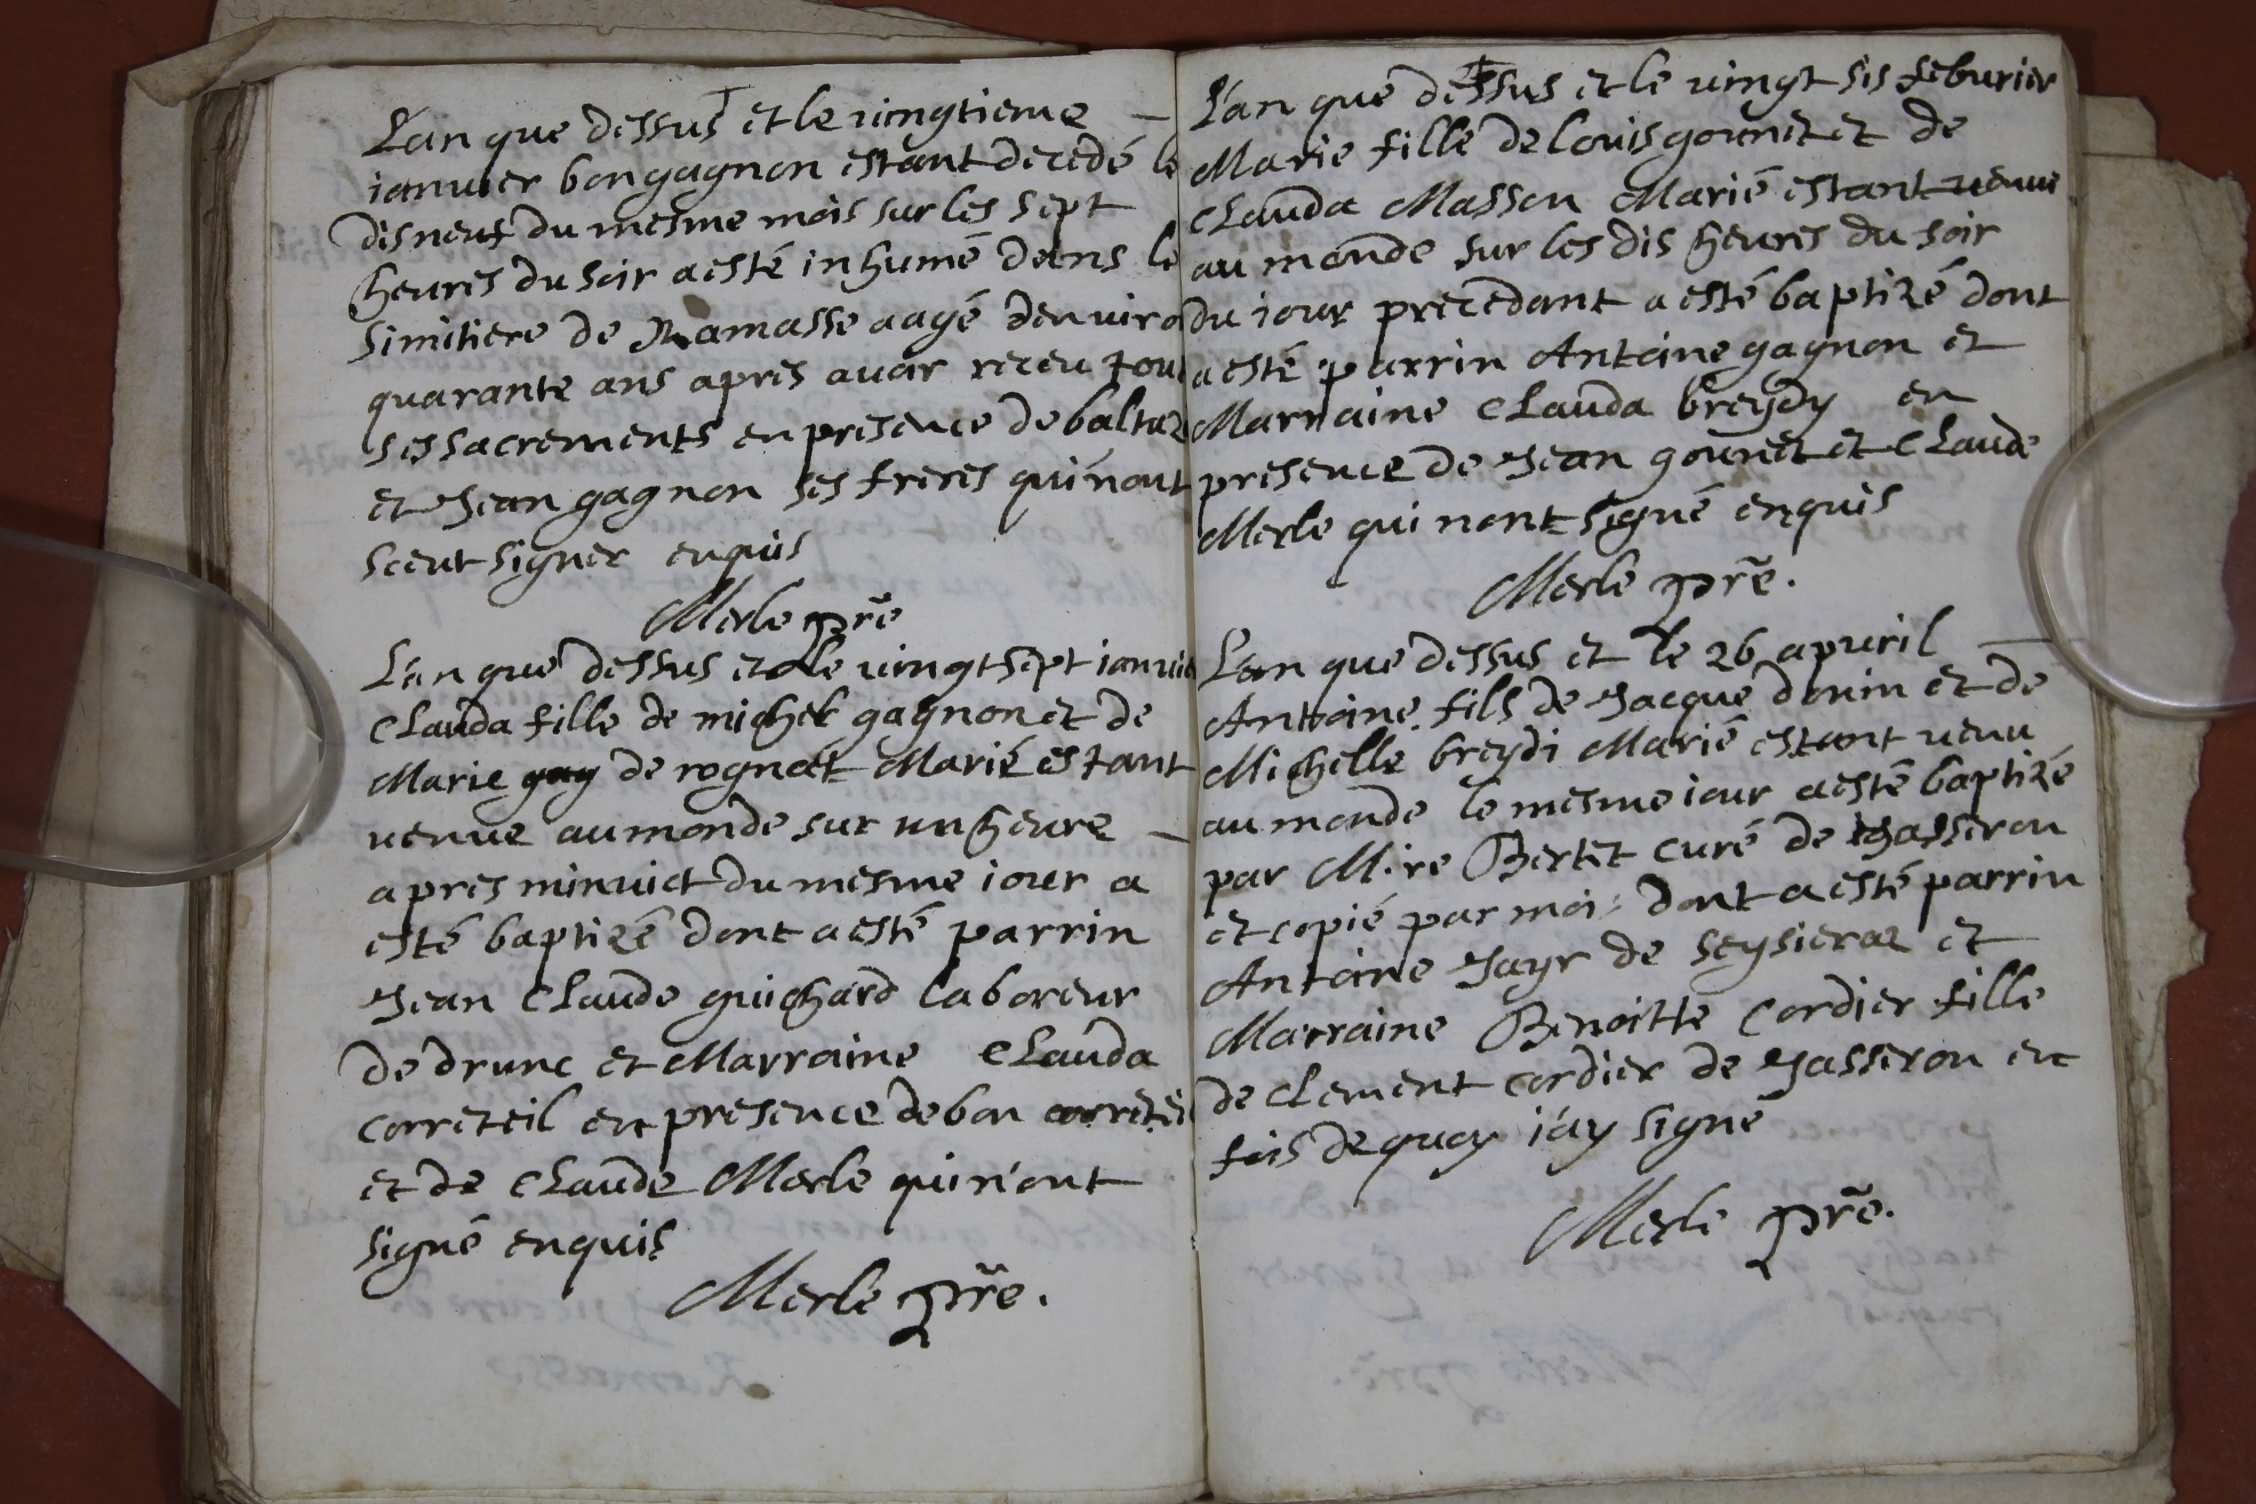 L'an que dessus et le vingtieme
ianvier bon gagnon estant decedé le
disneuf du mesme mois sur les sept
heures du soir a esté inhumé dans le
simitiere de Ramasse aagé denviron
quarante ans apres avoir receu tout
ses sacrements en presence de baltaz
et Jean gagnon ses freres qui n'ont
sceut signer enquis
Merle pr̃e
L'an que dessus et le vingt sept ianvier
Clauda fille de michel gagnon et de
Marie de rognat Marié estant
venue au monde sur un heure
apres minuict du mesme iour a
esté baptizé dont a esté parrin
Jean Claude guichard laboreur
de drunc et Marraine Clauda
correteil en presence de bon correteil
et de Claude Merle qui n'ont
signé enquis
Merle pr̃e.
L'an que dessus et le vingt sis feburier
Marie fille de louis gounet et de
Clauda Masson Marié estant venue
au monde sur les dis heures du soir
du iour precedant a esté baptizé dont
a esté parrin Antoine gagnon et
Marraine Clauda breydy en
presence de Jean gounet et Claude
Merle qui nont signé enquis
Merle pr̃e.
L'an que dessus et le 26 apvril
Antoine fils de Jacque donin et de
Michelle breydi Marié estant venu
au monde le mesme iour a esté baptizé
par M.re Bertet curé de Jasseron
et copié par moi dont a esté parrin
Antoine Jayr de seysieraz et
Marraine Benoitte Cordier fille
de Clement cordier de Jasseron en
fois de quoy i'ay signé
Merle pr̃e.